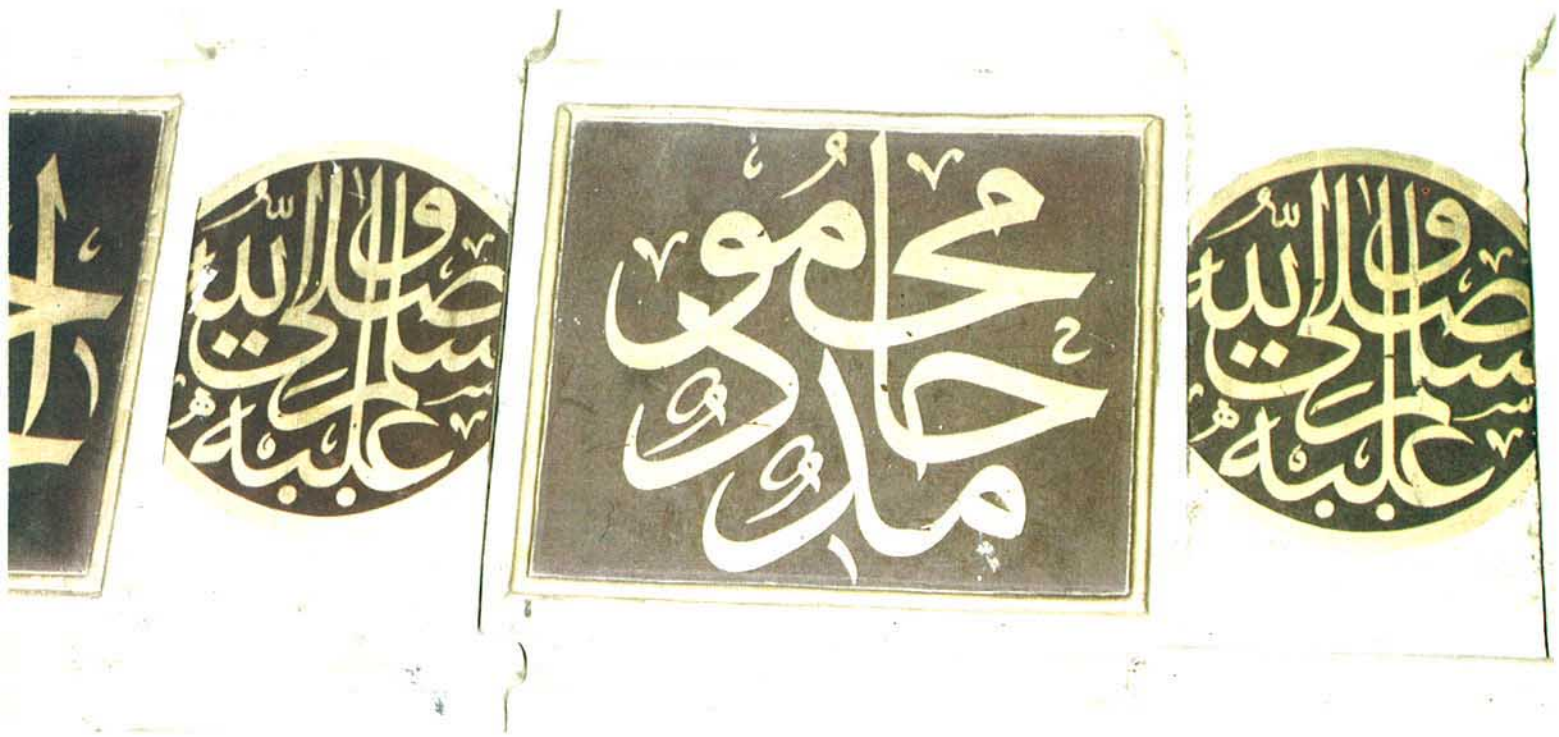 صلى الله عليه وسلم
محمود
حامد
صلى الله عليه وسلم